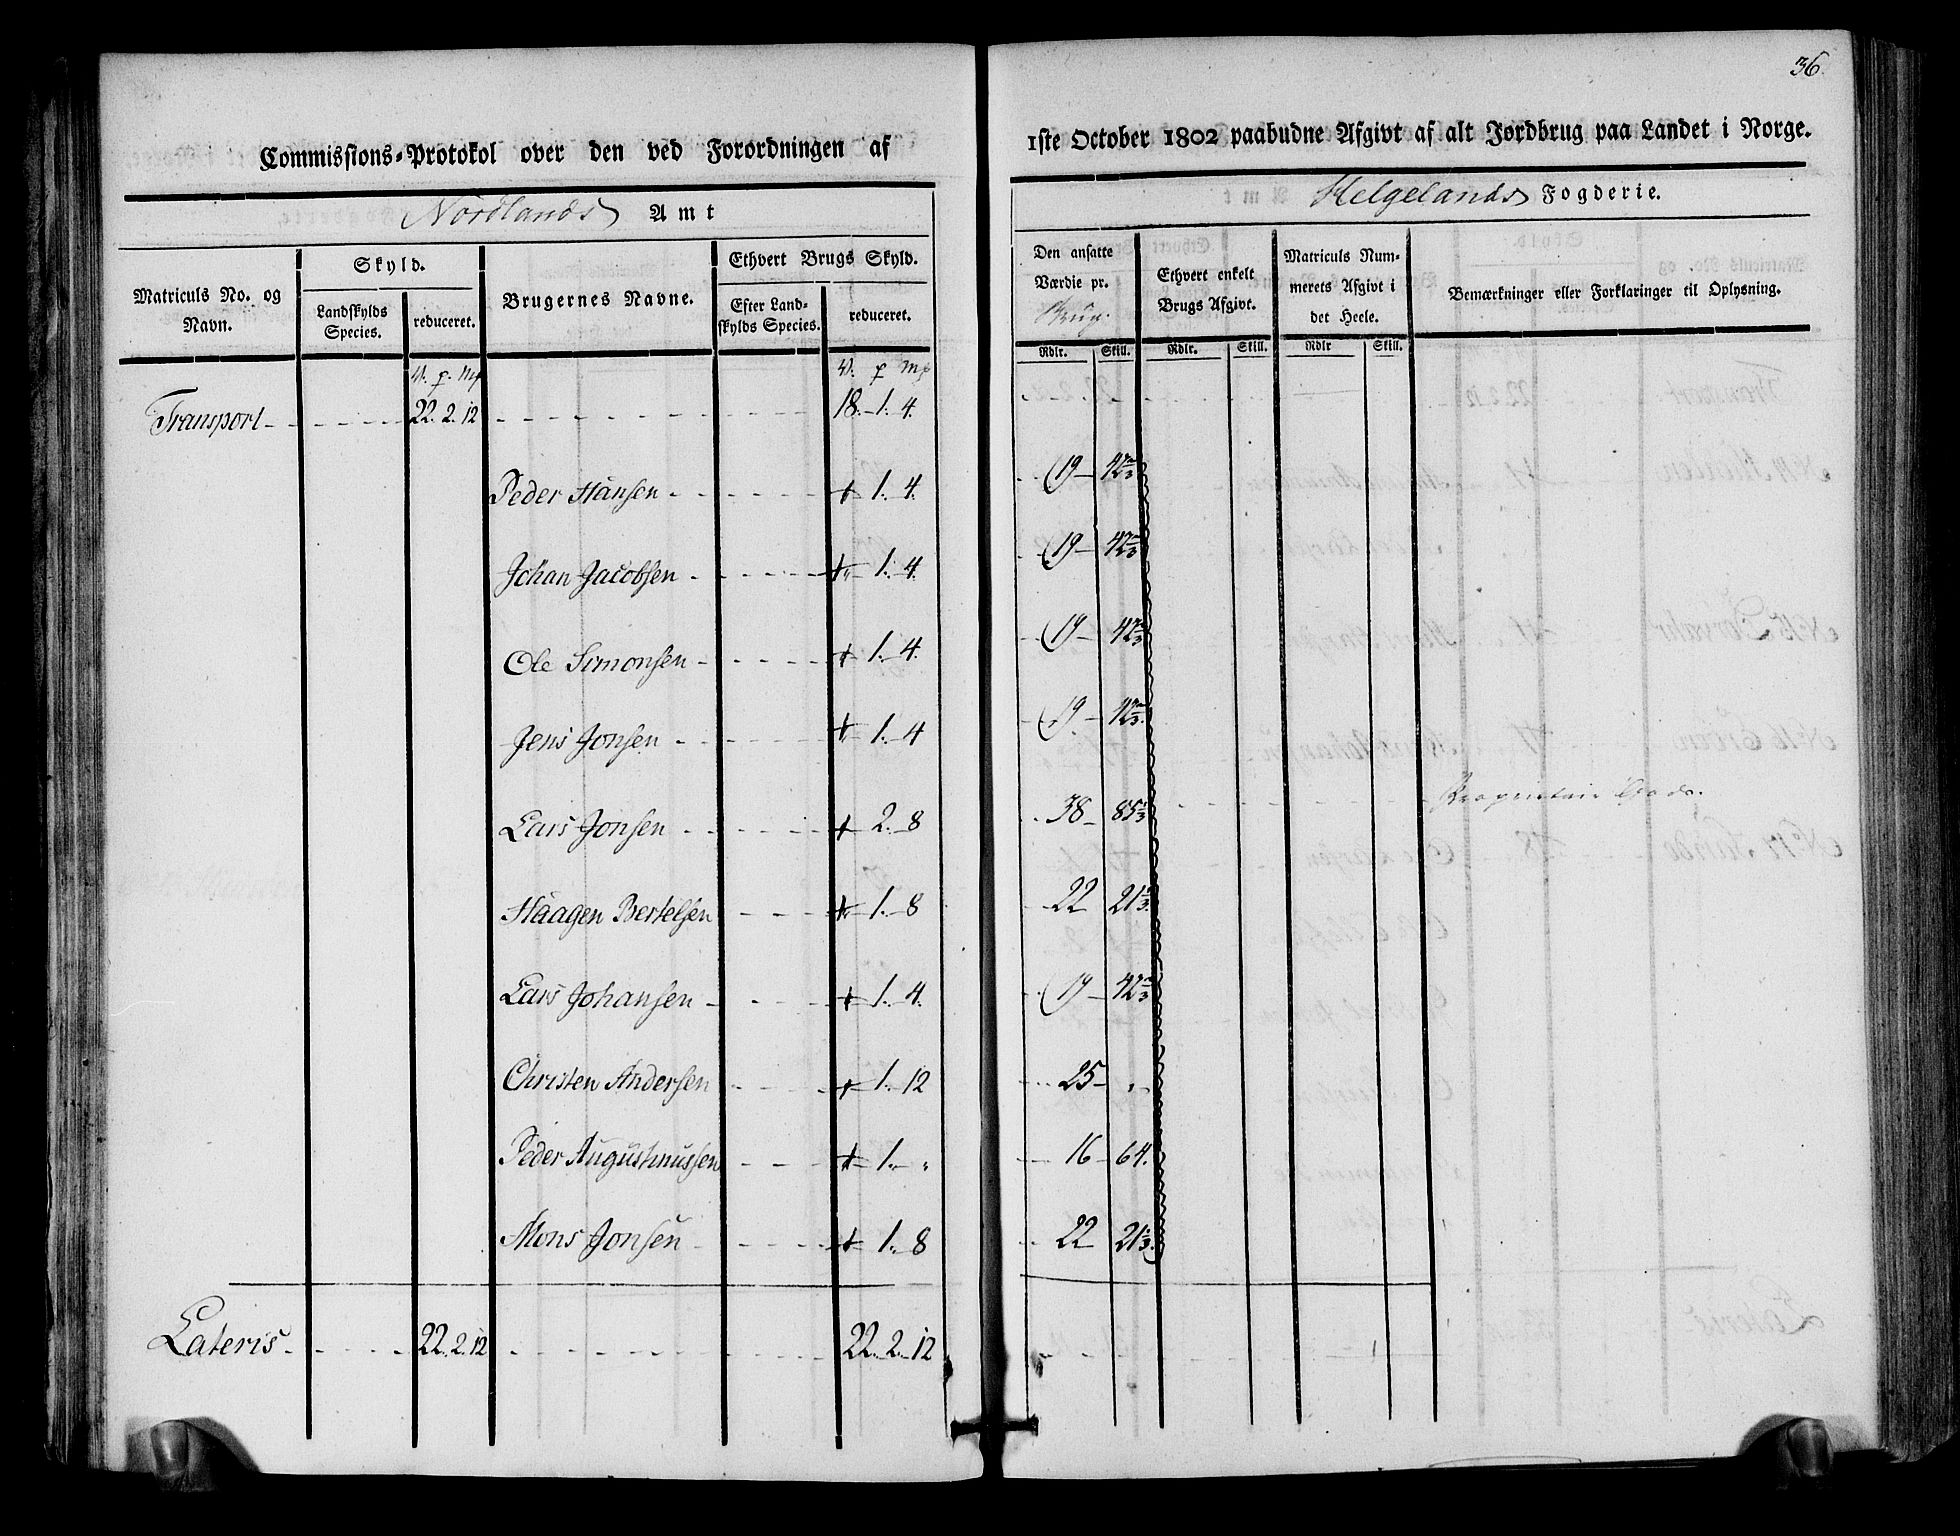 36.
Commissions-Protokol over den ved Forordningen af 1ste October 1802 paabudne Afgivt af alt Jordbrug paa Landet i Norge.
Nordlands Amt
Helgelands Fogderie.
Matriculs No. og Navn.
Skyld.
Landskylds Species.
reduceret.
Brugernes Navne.
Ethvert Brugs Skyld.
Efter Landskylds Species.
reduceret.
Den ansatte Værdie pr.
Rdlr. Skill.
Ethvert enkelt Brugs Afgivt.
Rdlr. Skill.
Matriculs Nummerets Afgivt i det Heele.
Rdlr Skill.
Bemærkninger eller Forklaringer til Oplysning.
V. p. Mk V. p Mk
Transport 22. 2. 12 18. 1. 4.
Peder Hansen 1. 4. 19 42 2/3
Johan Jacobsen 1. 4. 19 42 2/3
Ole Simonsen 1. 4. 19 42 2/3
Jens Jonsen 1. 4 19 42 2/3
Lars Jonsen 2. 8 38 85 1/3
Haagen Bertelsen 1. 8 22 21 1/3
Lars Johansen 1. 4. 19 42 2/3
Christen Andersen 1. 12 25 "
Peder Augustinussen 1. " 16 64.
Mons Jonsen 1. 8 22 21 1/3
Lateris 22. 2. 12 22. 2. 12